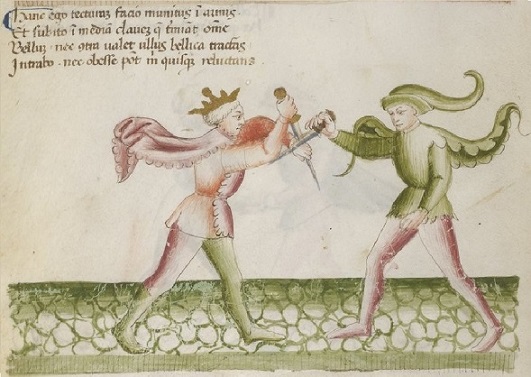 Hanc ego tecturaz facio munitus ī armis.
Et subito ī mediā clauez q̄ tīnat om̄e
Belluz. nec ꝯtra ualet ullus bellica tractās
Intrabo. nec obesse pōt m̄ quisqꝫ reluctans.